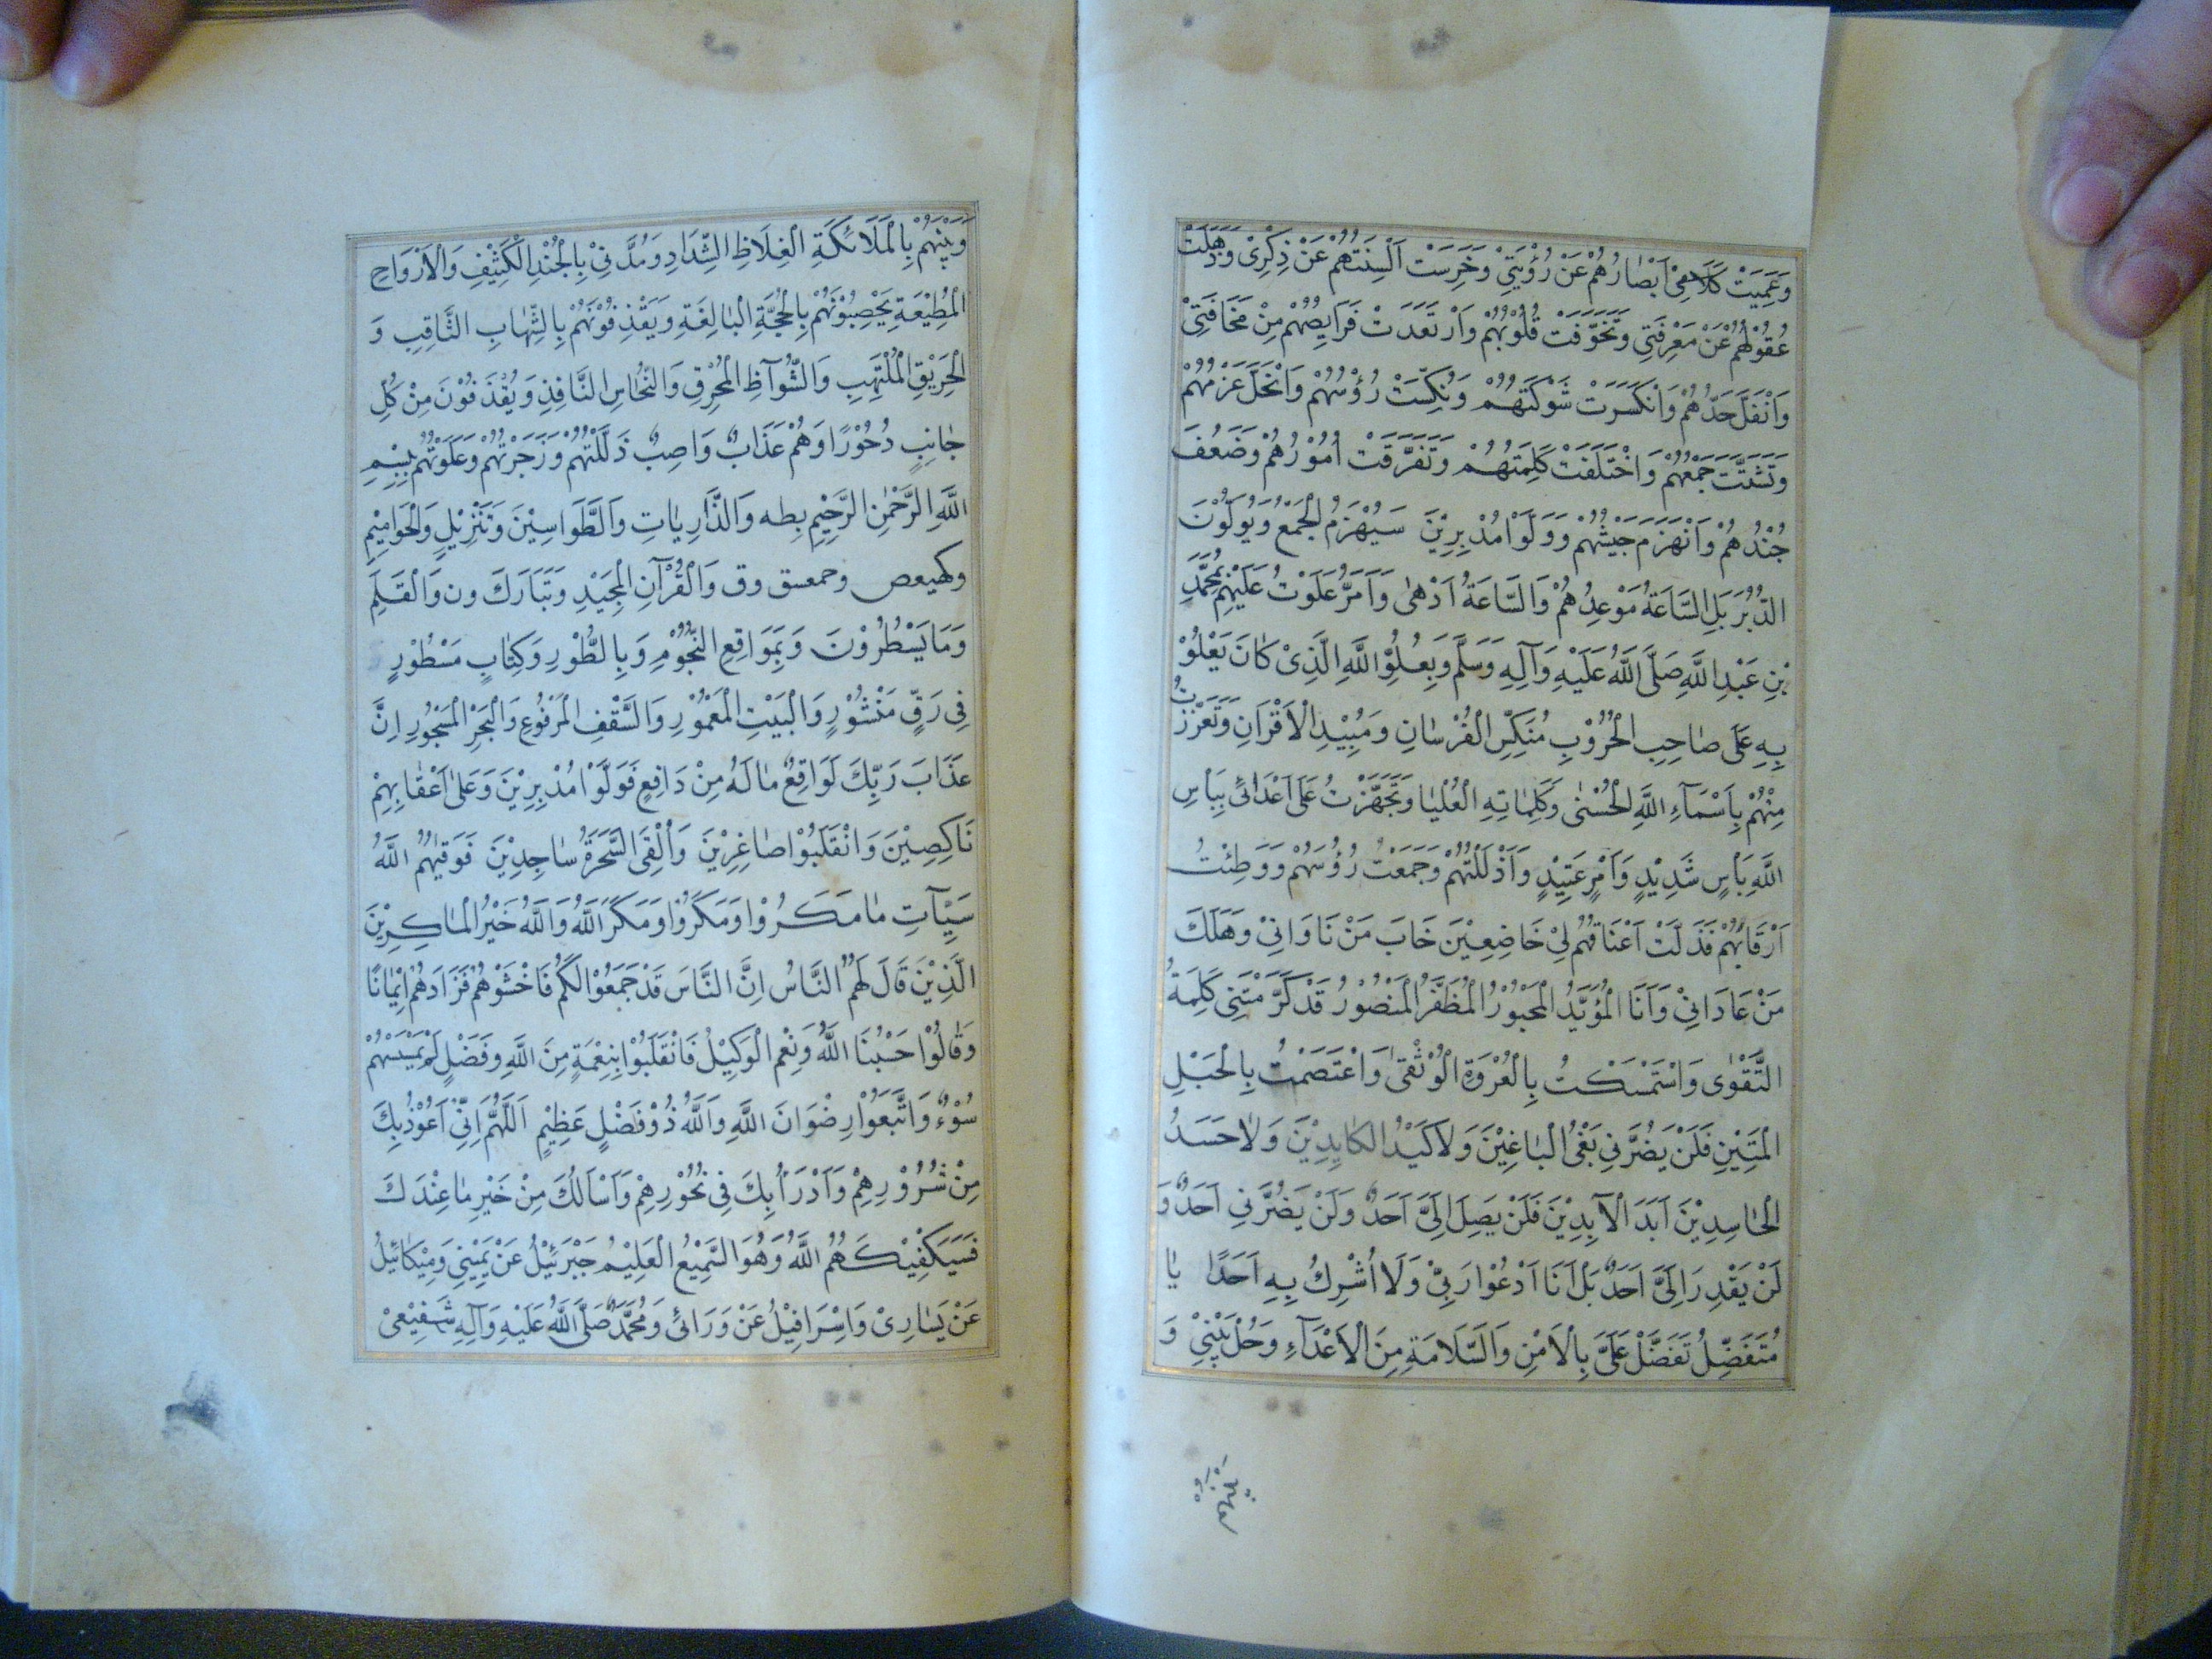 وَعَمِيَتْ كَلَاهِمْ اَبْصَارُهُمْ عَنْ رُؤْيَتِيْ وَخَرِسَتْ اَلْسِنَتُهُمْ عَنْ ذِكْرِيْ وَذَهَلَتْ
عُقُوْلُهُمْ عَنْ مَعْرِفَتِي وَتَخَوَّفَتْ قُلُوْبُهُمْ وَارْتَعَدَتْ فَرَايِصُهُمْ مِنْ مَخَافَتِيْ
وَانْفَلَّ حَدُّهُمْ وَانْكَسَرَتْ شَوْكَتُهُمْ وَنُكِّسَتْ رُؤْسُهُمْ وَانْحَلَّ عَزْمُهُمْ
وَتَشَتَّتَ جَمْعُهُمْ وَاخْتَلَفَتْ كَلِمَتُهُمْ وَتَفَرَّقَتْ اُمُوْرُهُمْ وَضَعُفَ
جُنْدُهُمْ وَانْهَزَمَ جَيْشُهُمْ وَوَلَّوْا مُدْبِرِيْنَ سَيُهْزَمُ الْجَمْعُ وَيُوَلُّوْنَ
الدُّبُرَ بَلِ السَّاعَةُ مَوْعِدُهُمْ وَالسَّاعَةُ اَدْهٰى وَاَمَرُّ عَلَوْتُ عَلَيْهِمْ بِمُحَمَّدِ
بْنِ عَبْدِ اللَّهِ صَلَّى اللَّهُ عَلَيْهِ وَآلِهِ وَسَلَّمَ وَبِعُلُوِّ اللَّهِ الَّذِيْ كَانَ يَعْلُوْ
بِهِ عَلَى صَاحِبِ الْحُرُوْبِ مُنَكِّسِ الْفُرْسَانِ وَمُبِيْدِ الْاَقْرَانِ وَتَعَزَّزْتُ
مِنْهُمْ بِاَسْمَآءِ اللَّهِ الْحُسْنٰى وَكَلِمَاتِهِ الْعُلْيَا وَتَجَهَّزْتُ عَلَى اَعْدَائِيْ بِبَاْسِ
اللَّهِ بَاْسٍ شَدِيْدٍ وَاَمْرٍ عَتِيْدٍ وَاَذْلَلْتُهُمْ وَجَمَعْتُ رُؤُسَهُمْ وَوَطِئْتُ
اَرْقَابَهُمْ فَذَلَّتْ اَعْنَاقُهُمْ لِيْ خَاضِعِيْنَ خَابَ مَنْ نَاوَانِيْ وَهَلَكَ
مَنْ عَادَانِيْ وَاَنَا الْمُؤَيَّدُ الْمَحْبُوْرُ الْمُظَفَّرُ الْمَنْصُوْرُ قَدْ كَرَّمَتْنِيْ كَلِمَةُ
التَّقْوٰى وَاسْتَمْسَكْتُ بِالْعُرْوَةِ الْوُثْقٰى وَاعْتَصَمْتُ بِالْحَبْلِ
الْمَتِيْنِ فَلَنْ يَضُرَّنِيْ بَغْيُ الْبَاغِيْنَ وَلَا كَيْدُ الْكَايِدِيْنَ وَلَا حَسَدُ
الْحَاسِدِيْنَ اَبَدَ الْآبِدِيْنَ فَلَنْ يَصِلَ اِلَيَّ اَحَدٌ وَلَنْ يَضُرَّنِي اَحَدٌ وَ
لَنْ يَقْدِرَ اِلَيَّ اَحَدٌ بَلْ اَنَا اَدْعُوْا رَبِّيْ وَلَا اُشْرِكُ بِهِ اَحَدًا يَا
مُتَفَضِّلُ تَفَضَّلْ عَلَيَّ بِالْاَمْنِ وَالسَّلَامَةِ مِنَ الْاَعْدَآءِ وَحُلْ بَيْنِيْ وَ
وَبَيْنَهُمْ بِالْمَلَائِكَةِ الْغِلَاظِ الشِّدَادِ وَمُدَّنِيْ بِالْجُنْدِ الْكَثِيْفِ وَالْاَرْوَاحِ
الْمُطِيْعَةِ يَحْصِبُوْنَهُمْ بِالْحُجَّةِ الْبَالِغَةِ وَيَقْذِفُوْنَهُمْ بِالشِّهَابِ الثَّاقِبِ وَ
الْحَرِيْقِ الْمُلْتَهِبِ وَالشُّوَآظِ الْمُحْرِقِ وَالنُّحَاسِ النَّافِذِ وَيُقْذَفُوْنَ مِنْ كُلِّ
جَانِبٍ دُحُوْرًا وَلَهُمْ عَذَابٌ وَاصِبٌ ذَلَّلْتُهُمْ وَزَجَرْتُهُمْ وَعَلَوْتُهُمْ بِبِسْمِ
اللَّهِ الرَّحْمٰنِ الرَّحِيْمِ بِطه وَالذَّارِيَاتِ وَالطَّوَاسِيْنَ وَتَنْزِيْلٍ وَالْحَوَامِيْمِ
وكهيعص وحمعسق وق وَالْقُرْآنِ الْمَجِيْدِ وَتَبَارَكَ ون وَالْقَلَمِ
وَمَا يَسْطُرُوْنَ وَبِمَوَاقِعِ النُّجُوْمِ وَبِالطُّوْرِ وَكِتَابٍ مَسْطُوْرٍ
فِي رَقٍّ مَنْشُوْرٍ وَالْبَيْتِ الْمَعْمُوْرِ وَالسَّقْفِ الْمَرْفُوْعِ وَالْبَحْرِ الْمَسْجُوْرِ اِنَّ
عَذَابَ رَبِّكَ لَوَاقِعٌ مَا لَهُ مِنْ دَافِعٍ فَوَلَّوْا مُدْبِرِيْنَ وَعَلٰى اَعْقَابِهِمْ
نَاكِصِيْنَ وَانْقَلَبُوْا صَاغِرِيْنَ وَاُلْقِيَ السَّحَرَةُ سَاجِدِيْنَ فَوَقٰيهُمُ اللَّهُ
سَيِّآتِ مَا مَكَرُوْا وَمَكَرُوْا وَمَكَرَ اللَّهُ وَاللَّهُ خَيْرُ الْمَاكِرِيْنَ
الَّذِيْنَ قَالَ لَهُمُ النَّاسُ اِنَّ النَّاسَ قَدْ جَمَعُوْا لَكُمْ فَاخْشَوْهُمْ فَزَادَهُمْ اِيْمَانًا
وَقَالُوْا حَسْبُنَا اللَّهُ وَنِعْمَ الْوَكِيْلُ فَانْقَلَبُوْا بِنِعْمَةٍ مِنَ اللَّهِ وَفَضْلٍ لَمْ يَمْسَسْهُمْ
سُوْءٌ وَاتَّبَعُوْا رِضْوَانَ اللَّهِ وَاللَّهُ ذُوْ فَضْلٍ عَظِيْمٍ اَللَّهُمَّ اِنِّيْ اَعُوْذُ بِكَ
مِنْ شُرُوْرِهِمْ وَاَدْرَاُ بِكَ فِي نُحُوْرِهِمْ وَاَسْاَلُكَ مِنْ خَيْرِ مَا عِنْدَكَ
فَسَيَكْفِيْكَهُمُ اللَّهُ وَهُوَ السَّمِيْعُ الْعَلِيْمُ جَبْرَئِيْلُ عَنْ يَمِيْنِيْ وَمِيْكَائِيْلُ
عَنْ يَسَارِيْ وَاِسْرَافِيْلُ عَنْ وَرَائِيْ وَمُحَمَّدٌ صَلَّى اللَّهُ عَلَيْهِ وَآلِهِ شَفِيْعِيْ